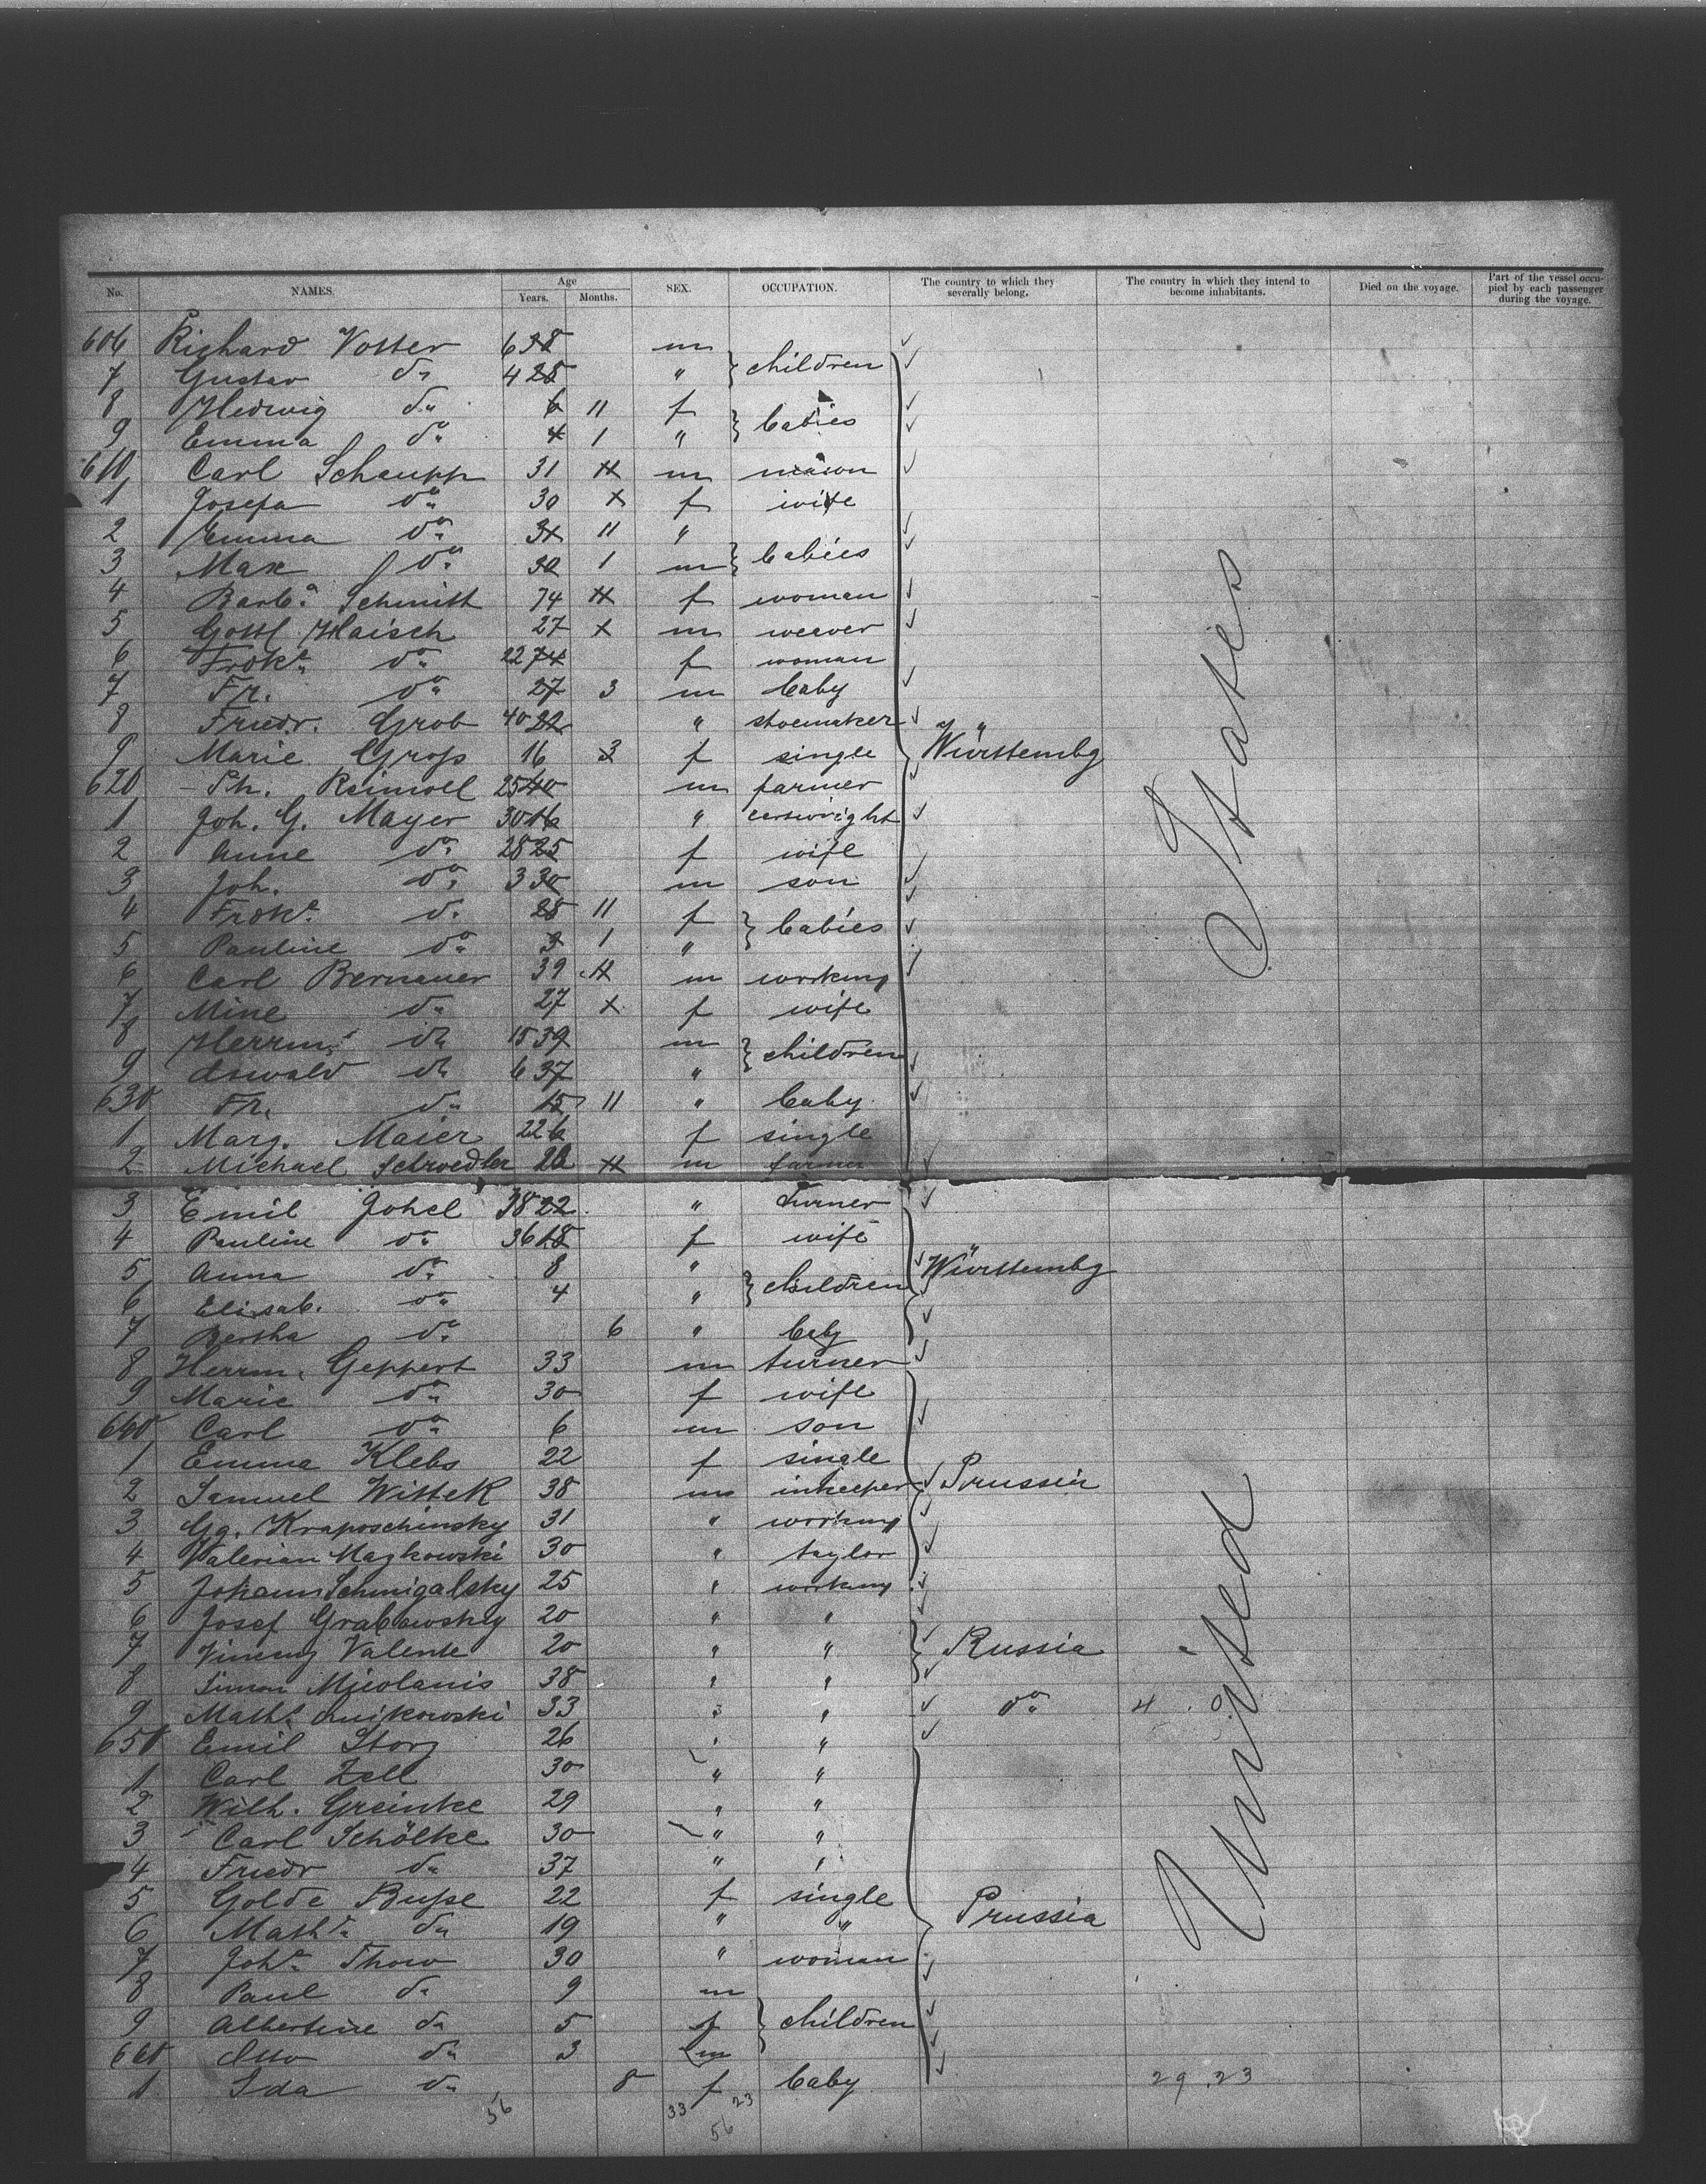 No. NAMES. Age Years. Months. SEX. OCCUPATION. The country to which they severally belong. The country in which they intend to become inhabitants. Died on the voyage. Part of the vessel occupied by each passenger during the voyage.
606 Richard Votter 6 38 m
7 Gustav do 4 25 " } children
8 Hedwig do 6 11 f
9 Emma do 4 1 " } babies
610 Carl Schaupp 31 11 m mason
1 Josefa do 30 x f wife
2 Emma do 31 11 "
3 Max do 30 1 m } babies
4 Barba. Schmitt 74 11 f woman
5 Gottl Haisch 27 x m weaver
6 Fredke do 22 74 f woman
7 Fr. do 27 3 m baby
8 Friedr. Grob 40 22 " shoemaker
9 Marie Gross 16 3 f single Württembg
620 Ph. 25 40 m farmer
1 Joh. G. Mayer 30 16 " cartwright
2 Anne do 28 25 f wife
3 Joh. do 3 30 m son
4 Fredke do 28 11 f
5 Pauline do 3 1 " } babies
6 Carl Bernauer 39 11 m working
7 Mine do 27 x f wife
8 Herrm. do 15 39 m
9 Oswald do 6 37 " } children
630 Fr. do 15 11 " baby
1 Marg. Maier 22 6 f single
2 Michael Schroedler 11 m farmer
3 Emil Johel 38 22 " turner
4 Pauline do 36 18 f wife
5 Anna do 8 " Württembg
6 Elisab. do 4 " } children
7 Bertha do 6 " baby
8 Herrm. Geppert 33 m turner
9 Marie do 30 f wife
640 Carl do 6 m son
1 Emma Klebs 22 f single
2 Samuel Wittek 38 m inkeeper Prussia
3 Gg. Kraposchinsky 31 " working
4 Valerian Mazkowski 30 " taylor
5 Johann Schmigalsky 25 " working
6 Josef Grabowsky 20 " "
7 Valente 20 " " Russia
8 Simon Micolanis 38 " "
9 33 " " do 4
650 Emil Storz 26 " "
1 Carl Zell 30 " "
2 Wilh. Greinke 29 " "
3 Carl Schölke 30 " "
4 Friedr do 37 " "
5 Golde Busse 22 f single
6 Mathe do 19 " " Prussia
7 Johe Thow 30 " woman
8 Paul do 9 m
9 Albertine do 5 f } children
660 Otto do 3 m
1 Ida do 8 f baby 29.23
56 33 23
56
United States